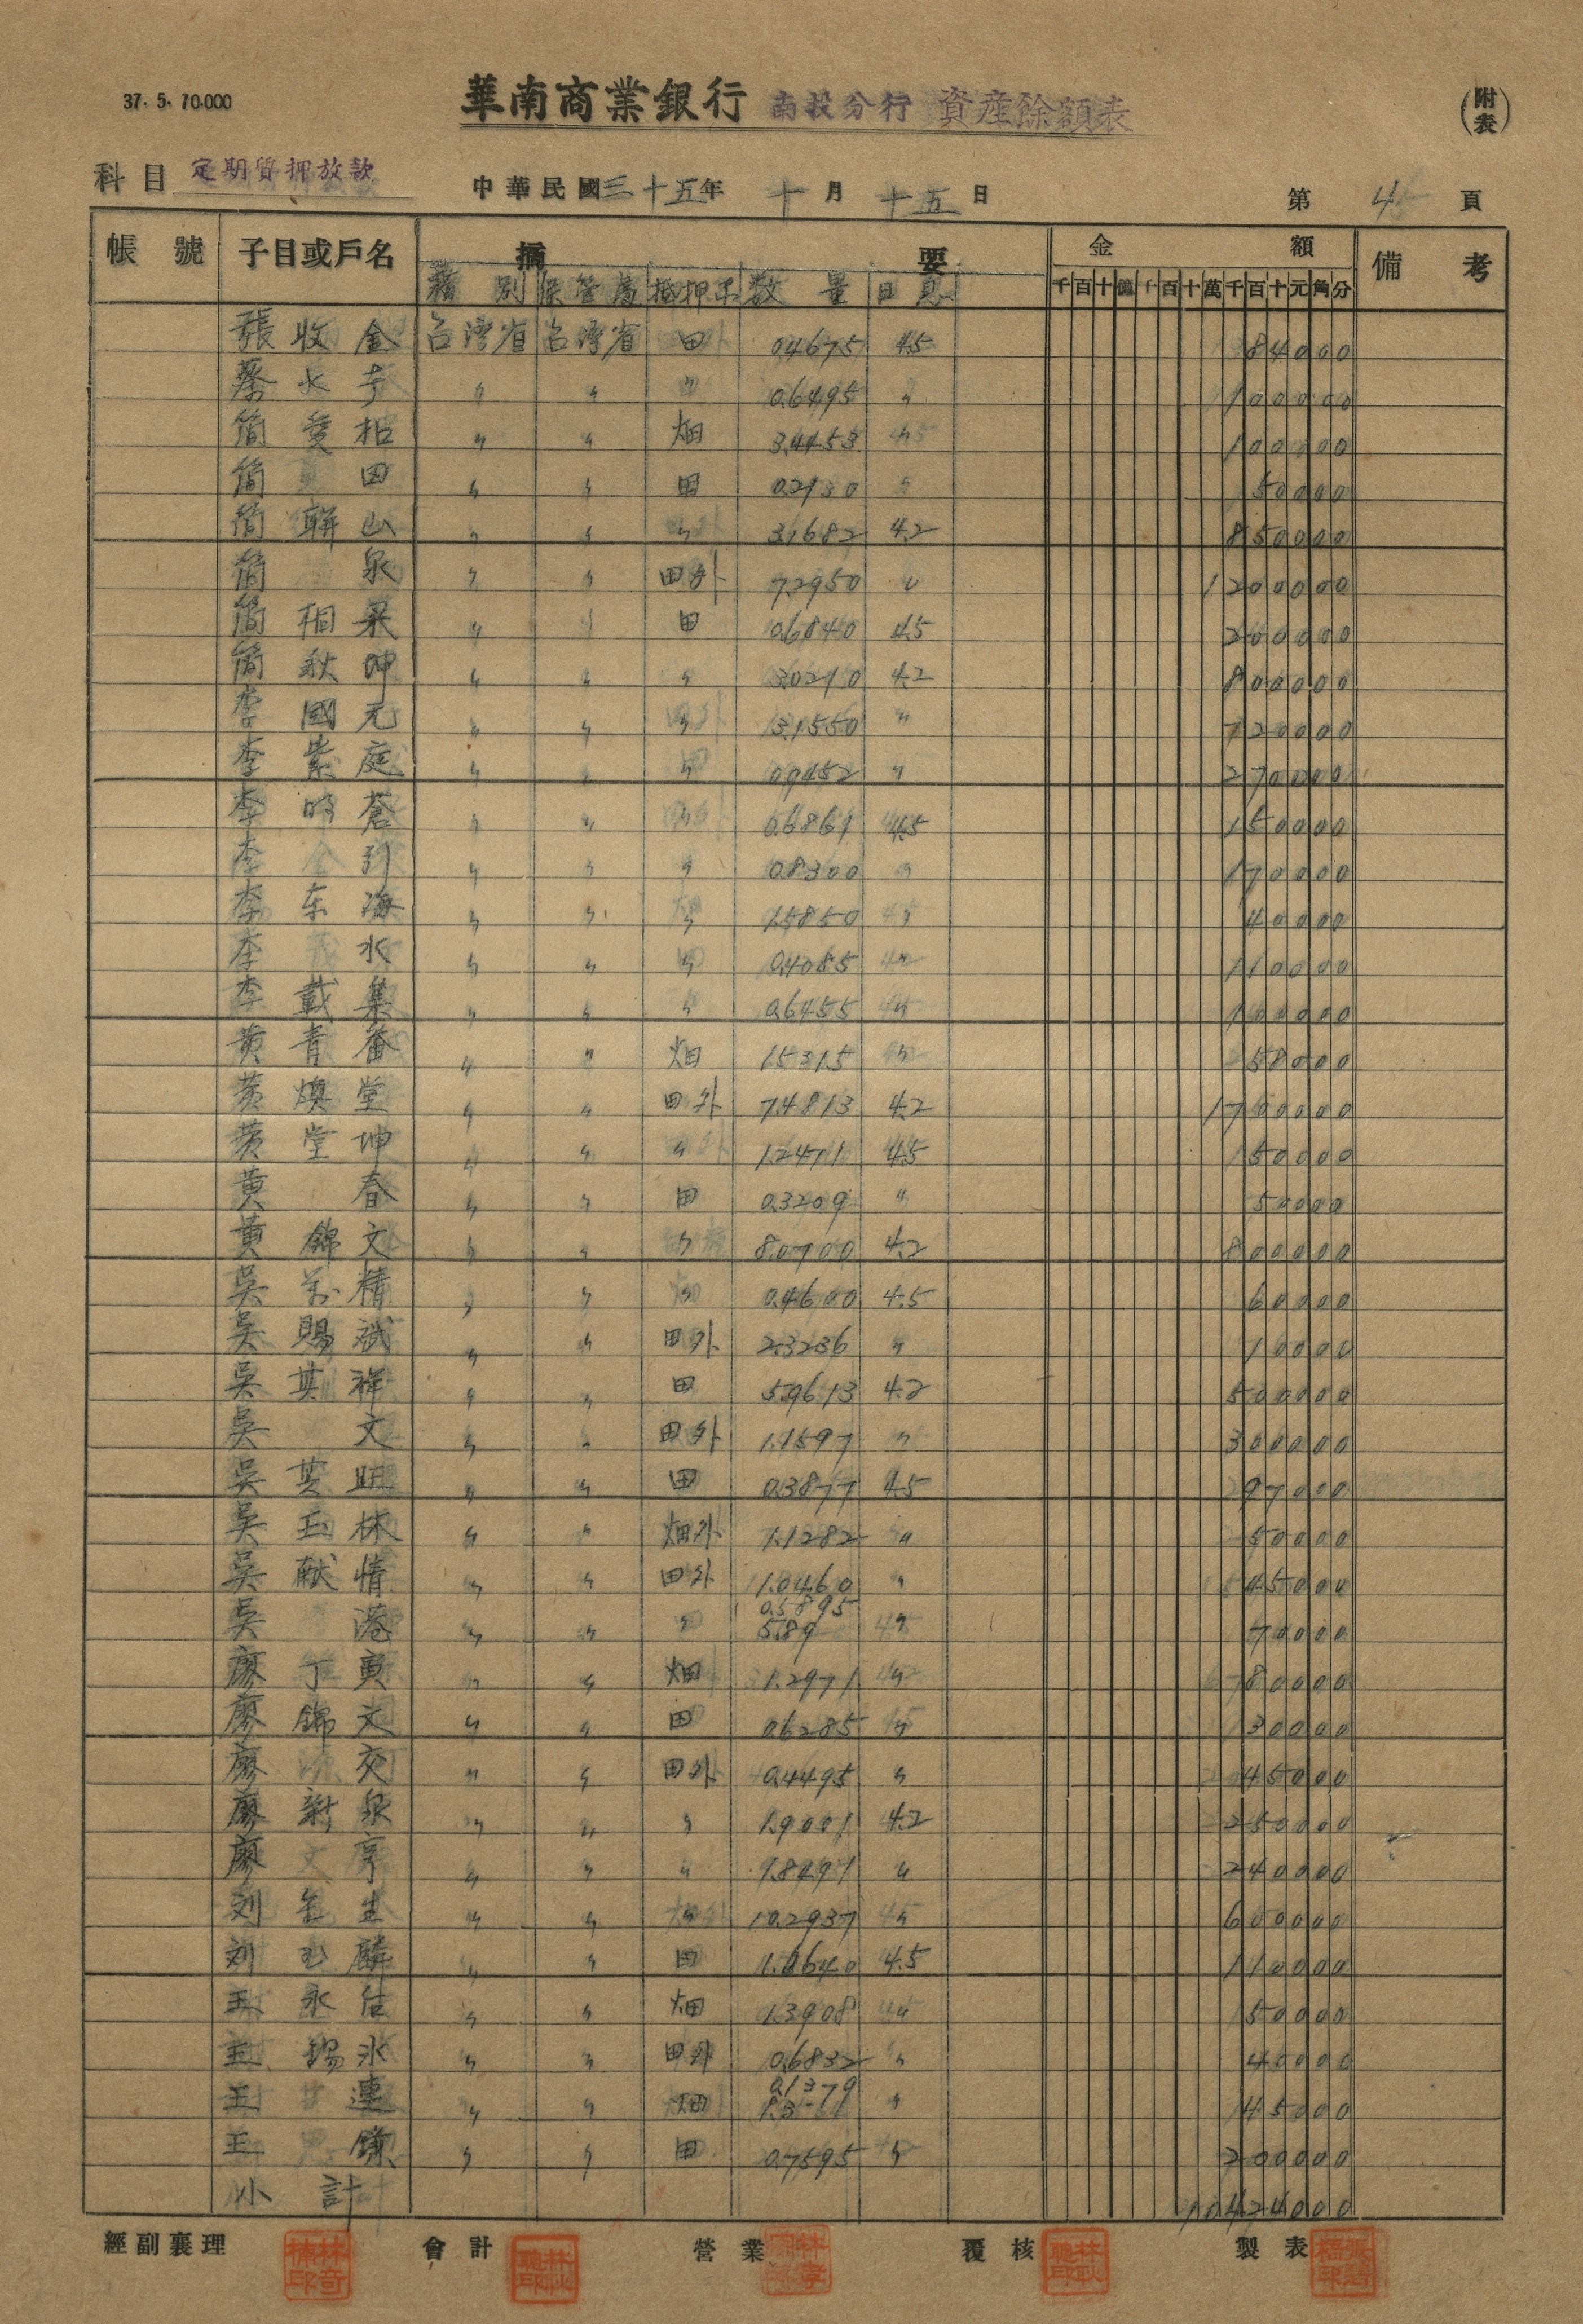 37. 5. 70.000
華南商業銀行 南投分行 資産餘額表
(附表)
科目 定期質押放款 中華民國三十五年 十月 十五日 第 4 頁
帳號 子目或戶名 摘要 金額 備考
籍別 保管處 抵押品 数量 日息 千百十億千百十萬千百十元角分
張收金 台湾省 台湾省 田 0.4675 4.5 84000
蔡水 〃 〃 〃 0.6495 〃 100000
簡愛柏 〃 〃 畑 3.4453 〃 100000
簡田 〃 〃 田 0.2130 〃 50000
簡聯山 〃 〃 〃 3.1682 4.2 850000
簡泉 〃 〃 田外 7.2950 〃 1200000
簡相 〃 〃 田 0.6840 4.5 200000
簡秋坤 〃 〃 〃 3.0210 4.2 800000
李國元 〃 〃 〃 3.1550 〃 720000
李紫庭 〃 〃 〃 0.9452 〃 270000
李明蒼 〃 〃 〃 0.6861 4.5 150000
李 〃 〃 〃 0.8300 〃 170000
李东海 〃 〃 〃 1.5850 〃 40000
李水 〃 〃 〃 0.4085 〃 110000
李戴集 〃 〃 〃 0.6455 〃 100000
黄青番 〃 〃 畑 1.5315 〃 58000
黄煥堂 〃 〃 田外 7.4813 4.2 1700000
黄堂坤 〃 〃 〃 1.2471 4.5 50000
黄春 〃 〃 田 0.3209 〃 50000
黄錦文 〃 〃 〃 8.0700 4.2 800000
吳精 〃 〃 〃 0.4600 4.5 60000
吳賜斌 〃 〃 田外 2.3236 〃 10000
吳其祥 〃 〃 田 5.9613 4.2 500000
吳文 〃 〃 田外 1.1597 〃 300000
吳其旺 〃 〃 田 0.3877 4.5 97000
吳玉林 〃 〃 畑外 1.1282 〃 50000
吳献情 〃 〃 田外 1.0460 〃 45000
吳港 〃 〃 〃 0.5895 〃 70000
廖丁寅 〃 〃 畑 1.2971 〃 80000
廖錦文 〃 〃 田 0.6285 〃 30000
廖交 〃 〃 田外 0.4495 〃 45000
廖新泉 〃 〃 〃 1.9001 4.2 250000
廖文亨 〃 〃 〃 1.8491 〃 240000
刘金生 〃 〃 〃 10.2937 〃 600000
刘玉麟 〃 〃 田 1.0640 4.5 110000
王永 〃 〃 畑 1.3908 〃 50000
王錫水 〃 〃 田外 0.6832 〃 40000
王連 〃 〃 畑 0.1379 〃 45000
王鎮 〃 〃 田 0.7595 〃 200000
小計 10424000
經副襄理 會計 營業 覆核 製表